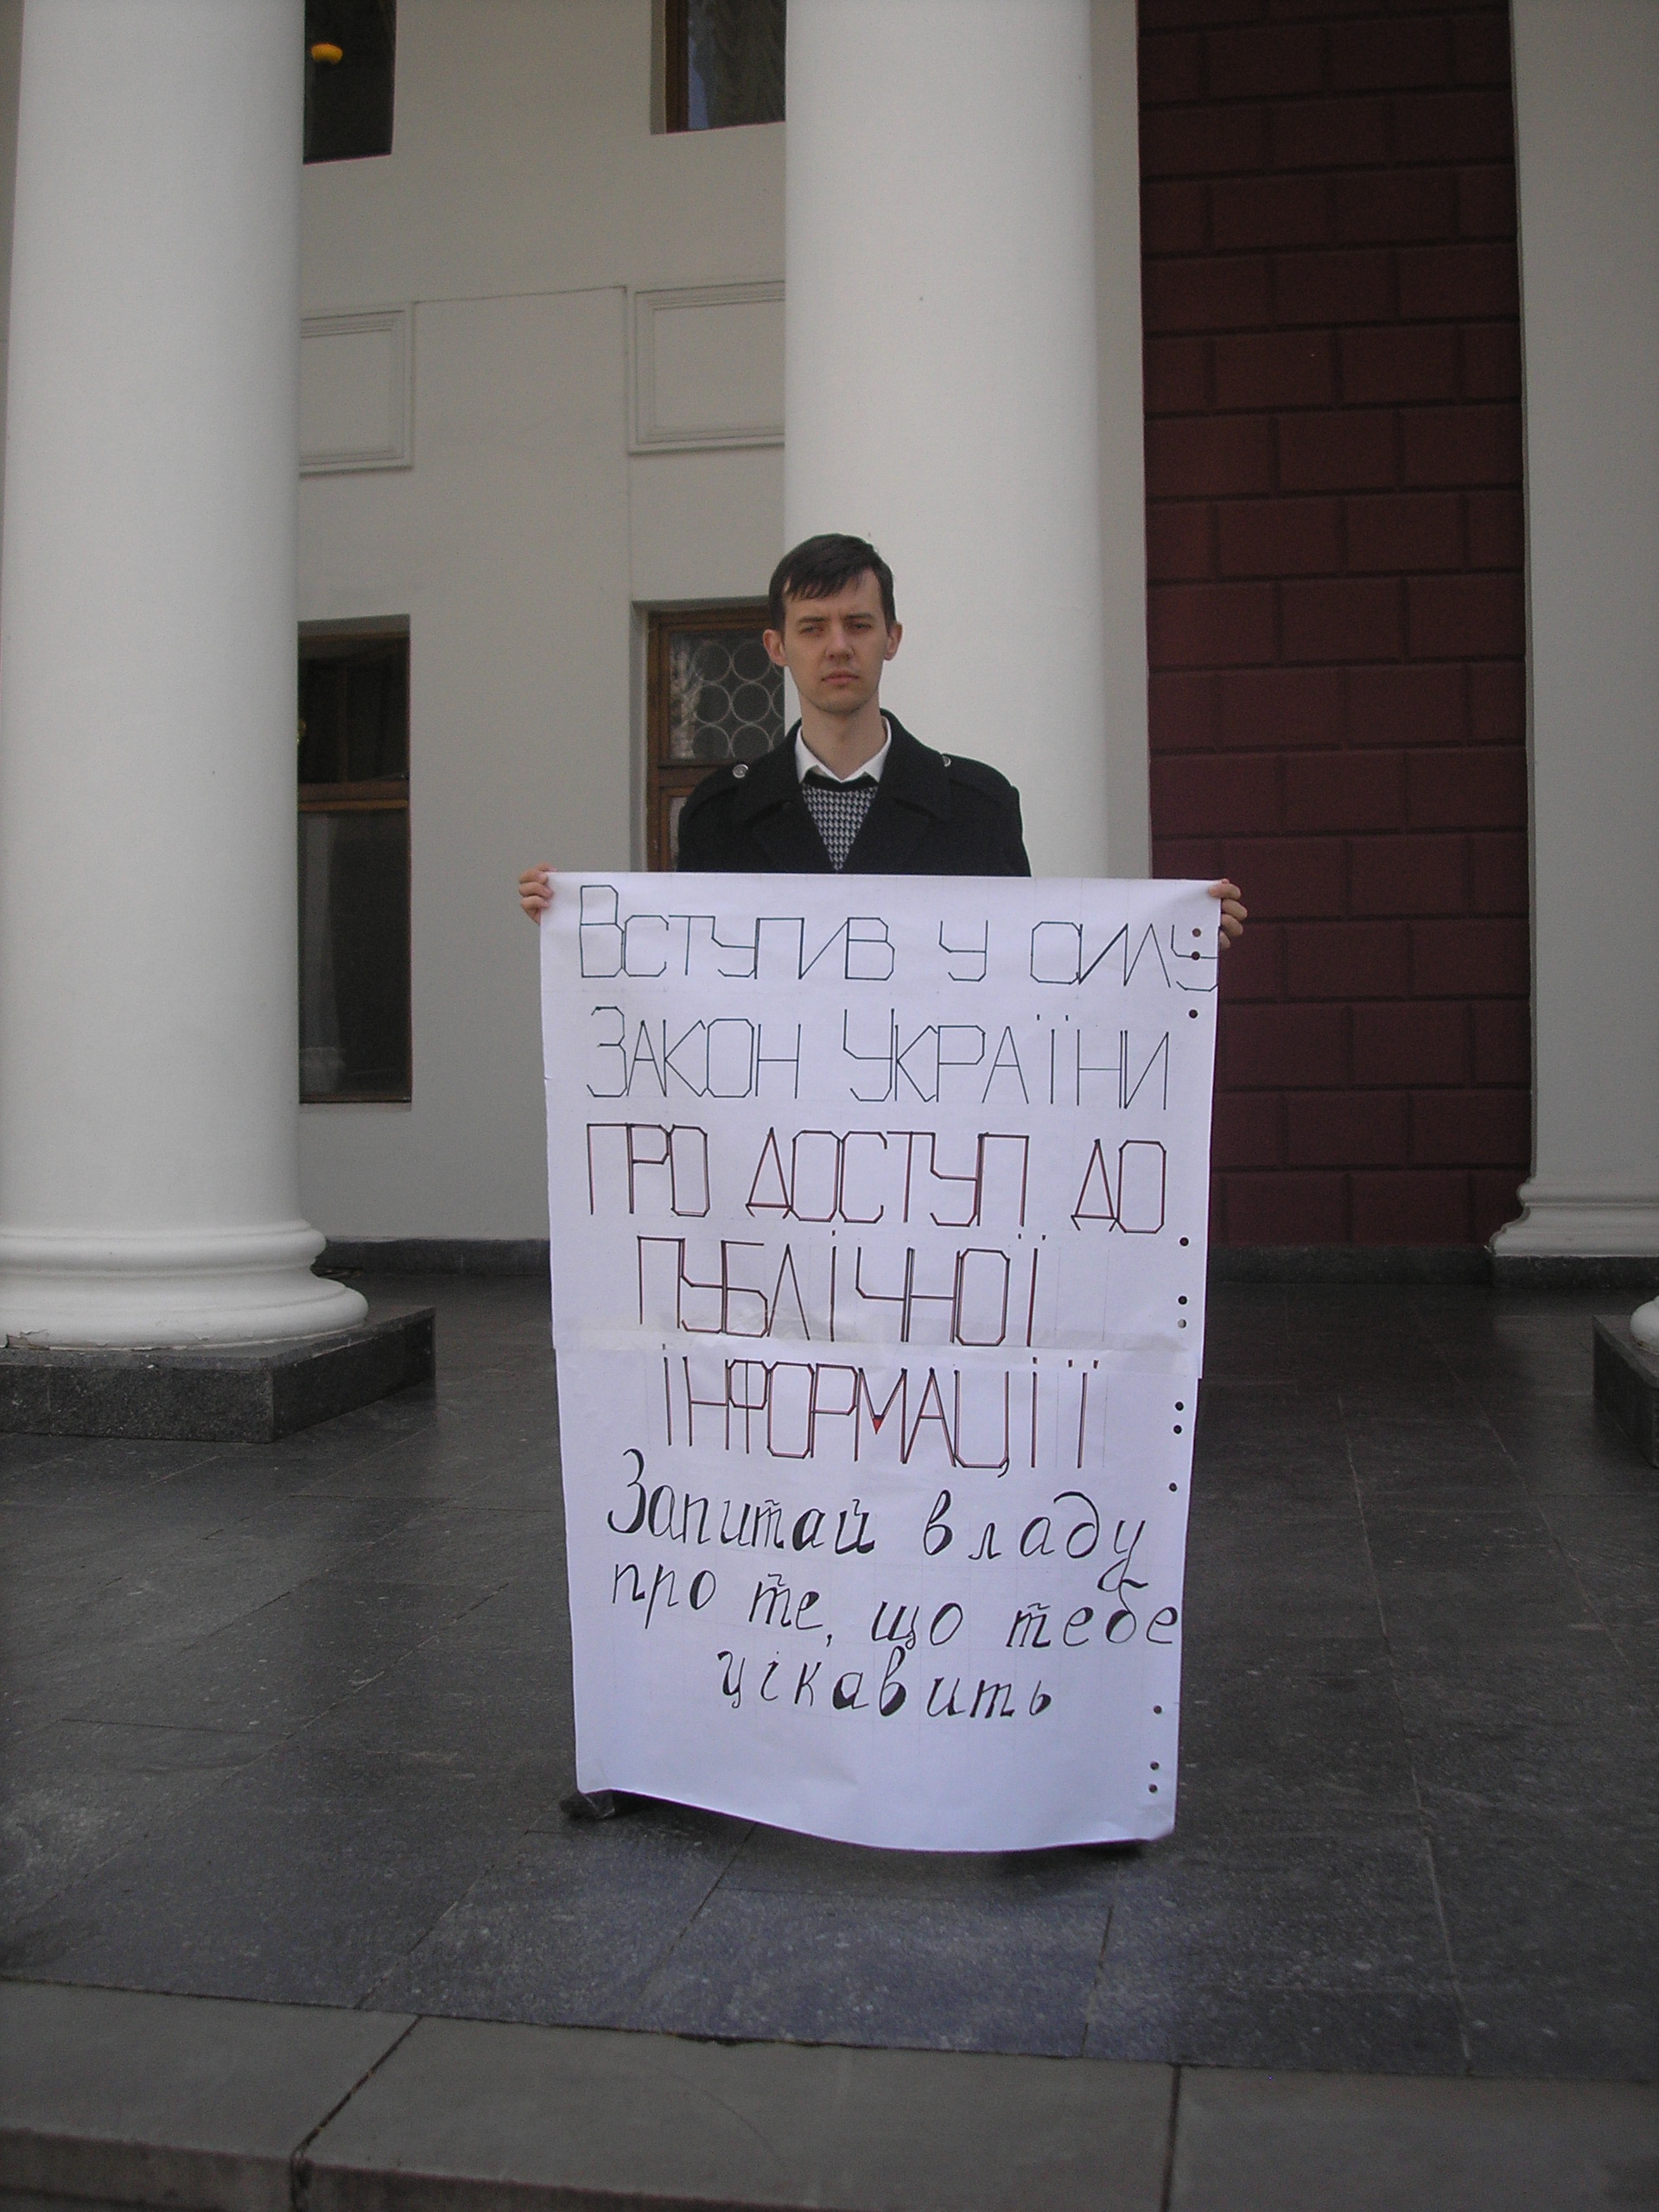 Вступив у силу
Закон України
про доступ до
публічної
інформації
Запитай владу
про те, що тебе
цікавить